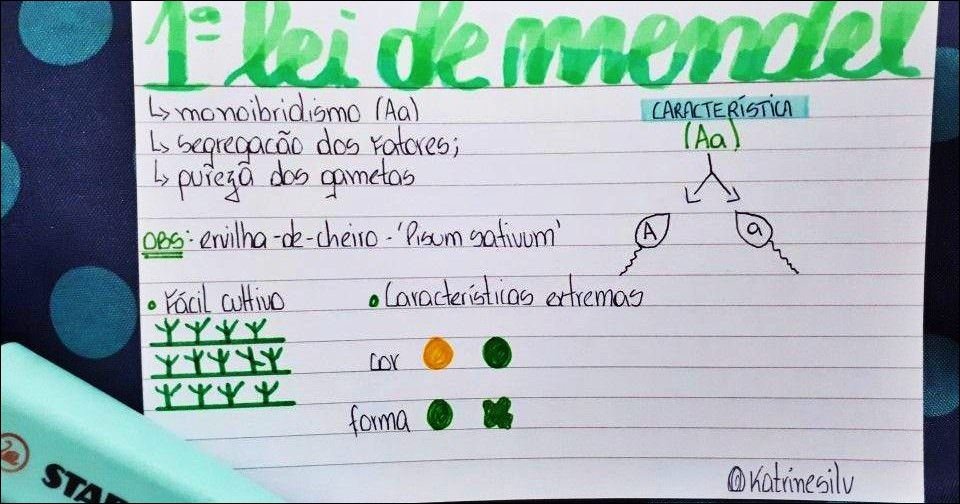 1ª lei de mendel
↳ monoibridismo (Aa)
↳ segregação dos Fatores;
↳ pureza dos gametas
CARACTERÍSTICA
(Aa)
A a
OBS: ervilha-de-cheiro - 'Pisum sativum'
• Fácil cultivo
• Características extremas
cor
forma
@Katrinesilv
STAB